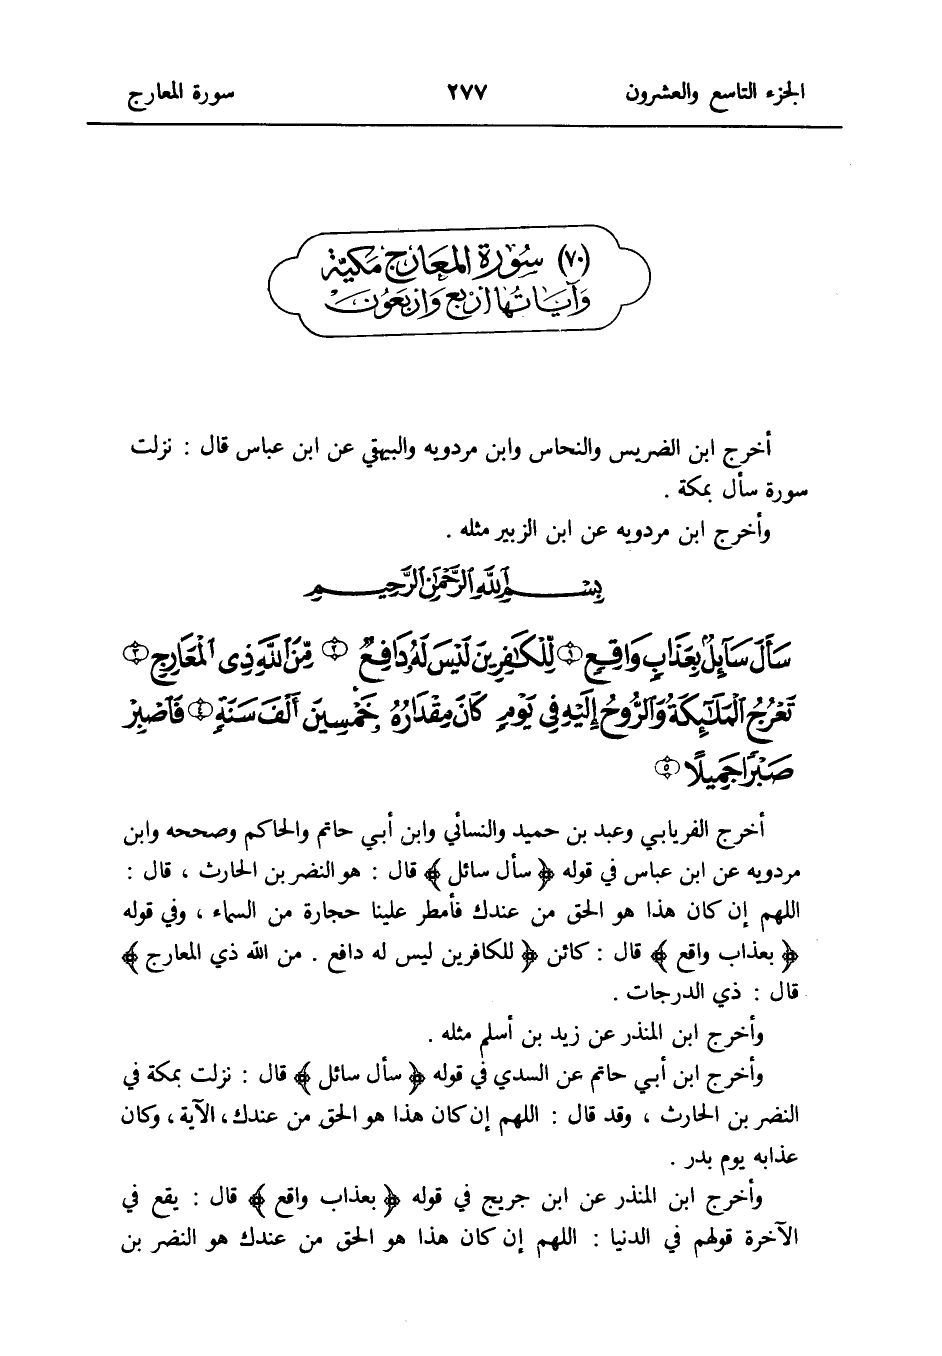 الجزء التاسع والعشرون ٢٧٧ سورة المعارج
(٧٠) سُورَة المعَارج مَكيّة
وَآيَاتهَا أرْبَع وَأرْبَعُونَ
أخرج ابن الضريس والنحاس وابن مردويه والبيهقي عن ابن عباس قال : نزلت
سورة سأل بمكة .
وأخرج ابن مردويه عن ابن الزبير مثله .
بِسْمِ اللَّهِ الرَّحْمَٰنِ الرَّحِيمِ
سَأَلَ سَآئِلٌۢ بِعَذَابٍ وَاقِعٍ ١ لِّلْكَٰفِرِينَ لَيْسَ لَهُۥ دَافِعٌ ٢ مِّنَ ٱللَّهِ ذِى ٱلْمَعَارِجِ ٣
تَعْرُجُ ٱلْمَلَٰٓئِكَةُ وَٱلرُّوحُ إِلَيْهِ فِى يَوْمٍ كَانَ مِقْدَارُهُۥ خَمْسِينَ أَلْفَ سَنَةٍ ٤ فَٱصْبِرْ
صَبْرًا جَمِيلًا ٥
أخرج الفريابي وعبد بن حميد والنسائي وابن أبي حاتم والحاكم وصححه وابن
مردويه عن ابن عباس في قوله ﴿ سأل سائل ﴾ قال : هو النضر بن الحارث ، قال :
اللهم إن كان هذا هو الحق من عندك فأمطر علينا حجارة من السماء ، وفي قوله
﴿ بعذاب واقع ﴾ قال : كائن ﴿ للكافرين ليس له دافع . من الله ذي المعارج ﴾
قال : ذي الدرجات .
وأخرج ابن المنذر عن زيد بن أسلم مثله .
وأخرج ابن أبي حاتم عن السدي في قوله ﴿ سأل سائل ﴾ قال : نزلت بمكة في
النضر بن الحارث ، وقد قال : اللهم إن كان هذا هو الحق من عندك ، الآية ، وكان
عذابه يوم بدر .
وأخرج ابن المنذر عن ابن جريج في قوله ﴿ بعذاب واقع ﴾ قال : يقع في
الآخرة قولهم في الدنيا : اللهم إن كان هذا هو الحق من عندك هو النضر بن